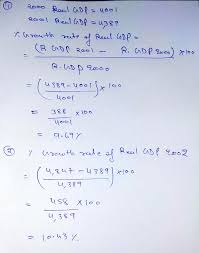 ① 2000 Real GDP = 4001
2001 Real GDP = 4389
% Growth rate of Real GDP =
= (R GDP 2001 - R. GDP 2000) x 100
R. GDP 2000
= (4389 - 4001) x 100
4001
= 388 x 100
4001
= 9.69%
② % Growth rate of Real GDP 2002
= (4,847 - 4389) x 100
4,389
= 458 x 100
4,389
= 10.43%